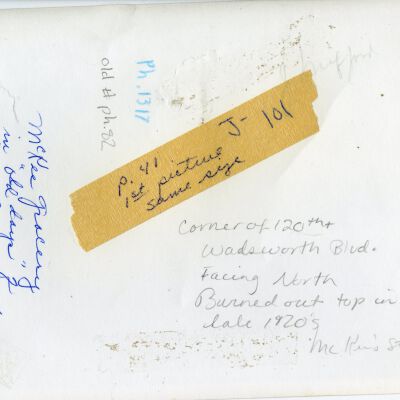 Ph. 1317
old # ph. 82
McKee Grocery
in old days
P. 41 J-101
1st picture
same size
Corner of 120th +
Wadsworth Blvd.
Facing North
Burned out top in
late 1920's